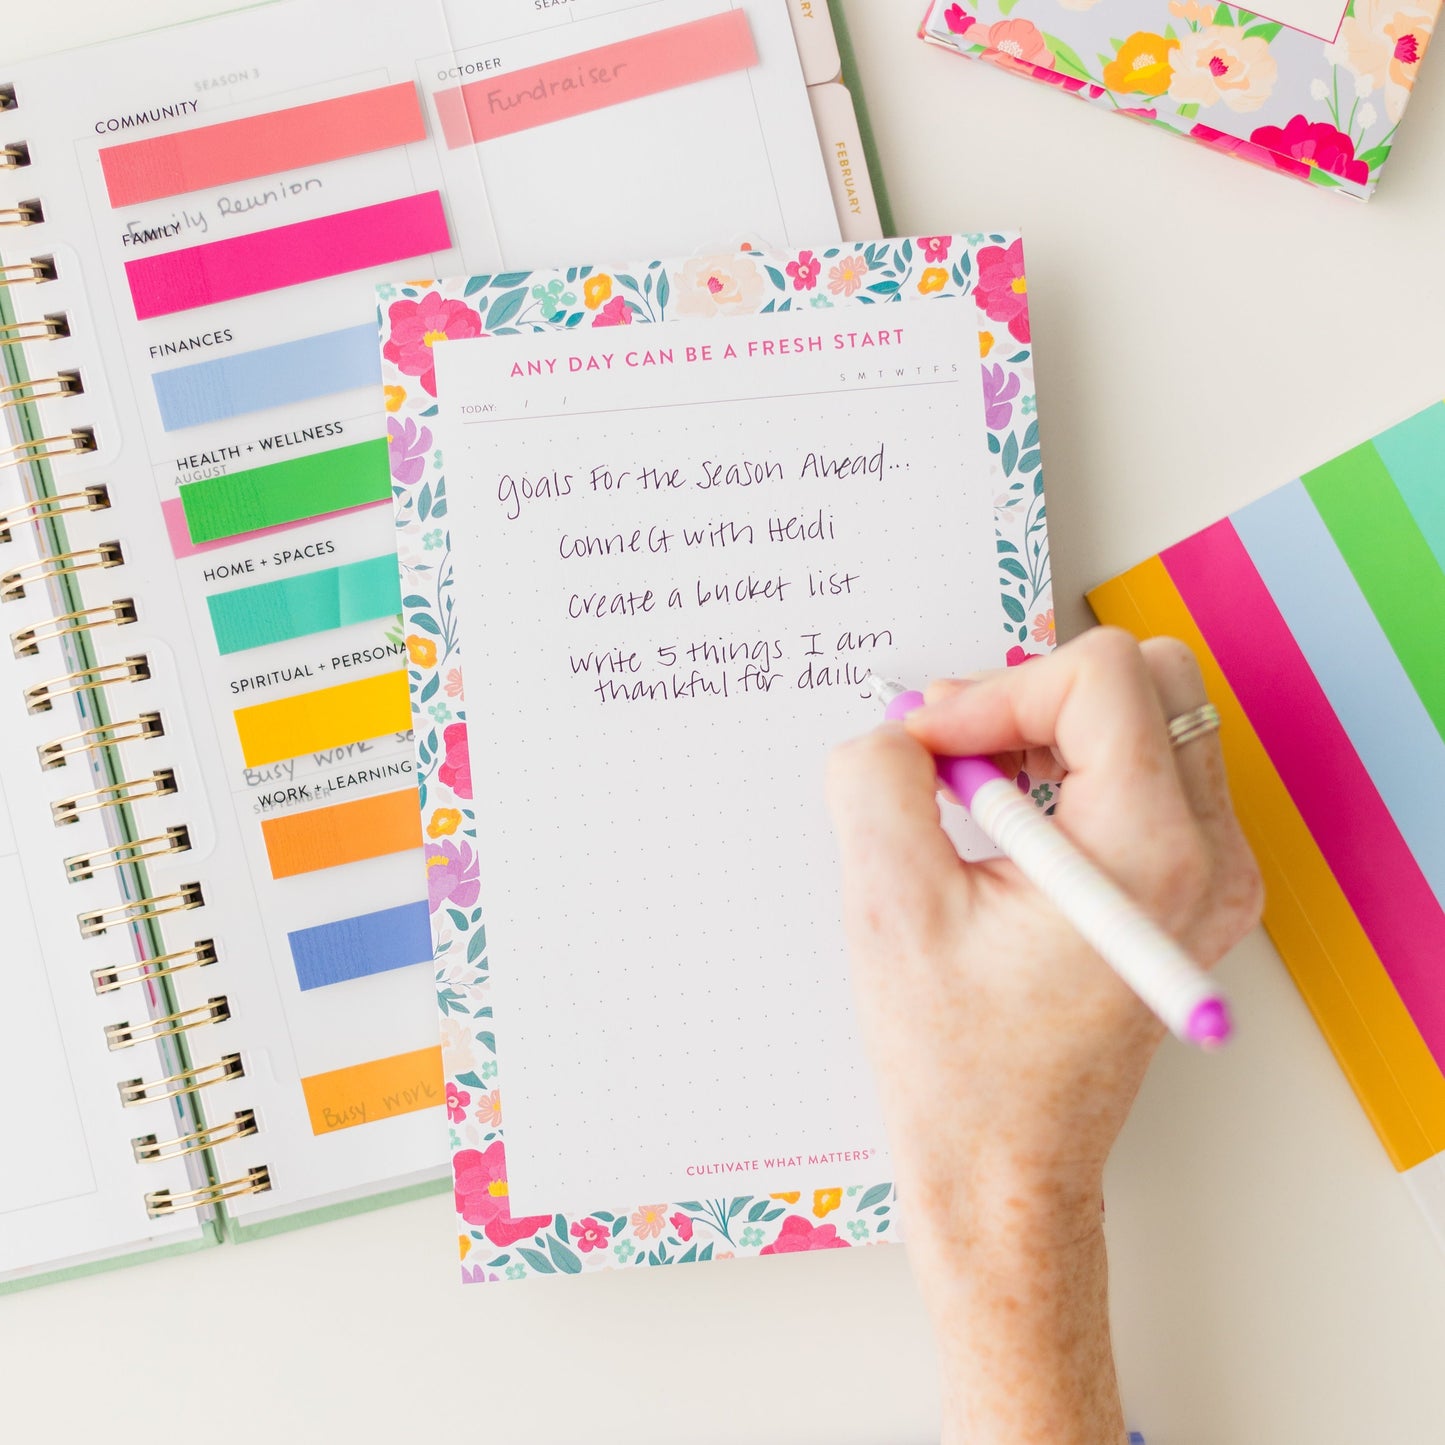 SEASON 3
COMMUNITY
OCTOBER
Fundraiser
Family Reunion
FAMILY
FEBRUARY
FINANCES
HEALTH + WELLNESS
AUGUST
HOME + SPACES
SPIRITUAL + PERSONA
Busy work se
WORK + LEARNING
SEPTEMBER
Busy work
ANY DAY CAN BE A FRESH START
S M T W T F S
TODAY: / /
Goals for the Season Ahead...
Connect with Heidi
Create a bucket list
Write 5 things I am
thankful for daily
CULTIVATE WHAT MATTERS®